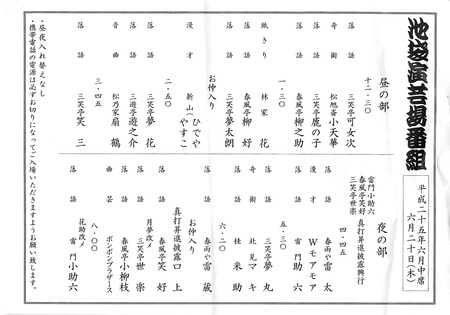 池袋演芸場番組
平成二十五年六月中席
六月二十日(木)
昼の部
十二・三〇
落語 三笑亭可女次
奇術 松旭斎小天華
落語 三笑亭鹿の子
落語 春風亭柳之助
一・二〇
紙きり 林家花
落語 春風亭柳好
落語 三笑亭夢太朗
お仲入り
漫才 新山(ひでや やすこ
二・五〇
落語 三笑亭夢花
落語 三遊亭遊之介
音曲 松乃家扇鶴
三・四五
落語 三笑亭笑三
夜の部
雷門小助六
春風亭笑好 真打昇進披露興行
三笑亭世楽
四・四五
落語 春雨や雷太
漫才 Wモアモア
落語 雷門助六
五・三〇
落語 三笑亭夢丸
奇術 北見マキ
落語 桂米助
六・二〇
落語 春雨や雷蔵
お仲入り
真打昇進披露口上
落語 春風亭笑好
月夢改メ
落語 三笑亭世楽
落語 春風亭小柳枝
曲芸 ボンボンブラザース
八・〇〇
花助改メ
落語 雷門小助六
・昼夜入れ替えなし
・携帯電話の電源は必ずお切りになってご入場いただきますようお願い致します。